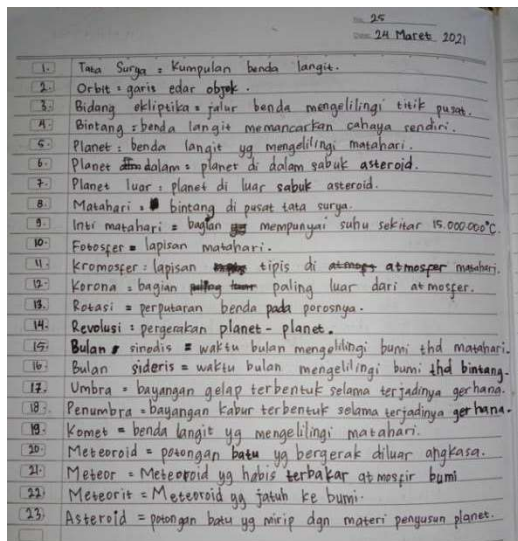 No. 25
Date. 24 Maret 2021
1. Tata Surya = Kumpulan benda langit.
2. Orbit = garis edar objek.
3. Bidang ekliptika = jalur benda mengelilingi titik pusat.
4. Bintang = benda langit memancarkan cahaya sendiri.
5. Planet = benda langit yg mengelilingi matahari.
6. Planet dalam = planet di dalam sabuk asteroid.
7. Planet luar = planet di luar sabuk asteroid.
8. Matahari = bintang di pusat tata surya.
9. Inti matahari = bagian mempunyai suhu sekitar 15.000.000°C.
10. Fotosfer = lapisan matahari.
11. Kromosfer = lapisan tipis di atmosper matahari.
12. Korona = bagian paling luar dari atmosfer.
13. Rotasi = perputaran benda pada porosnya.
14. Revolusi = pergerakan planet - planet.
15. Bulan sinodis = waktu bulan mengelilingi bumi thd matahari.
16. Bulan sideris = waktu bulan mengelilingi bumi thd bintang.
17. Umbra = bayangan gelap terbentuk selama terjadinya gerhana.
18. Penumbra = bayangan kabur terbentuk selama terjadinya gerhana.
19. Komet = benda langit yg mengelilingi matahari.
20. Meteoroid = potongan batu yg bergerak diluar angkasa.
21. Meteor = Meteoroid yg habis terbakar atmosfir bumi
22. Meteorit = Meteoroid yg jatuh ke bumi.
23. Asteroid = potongan batu yg mirip dgn materi penyusun planet.